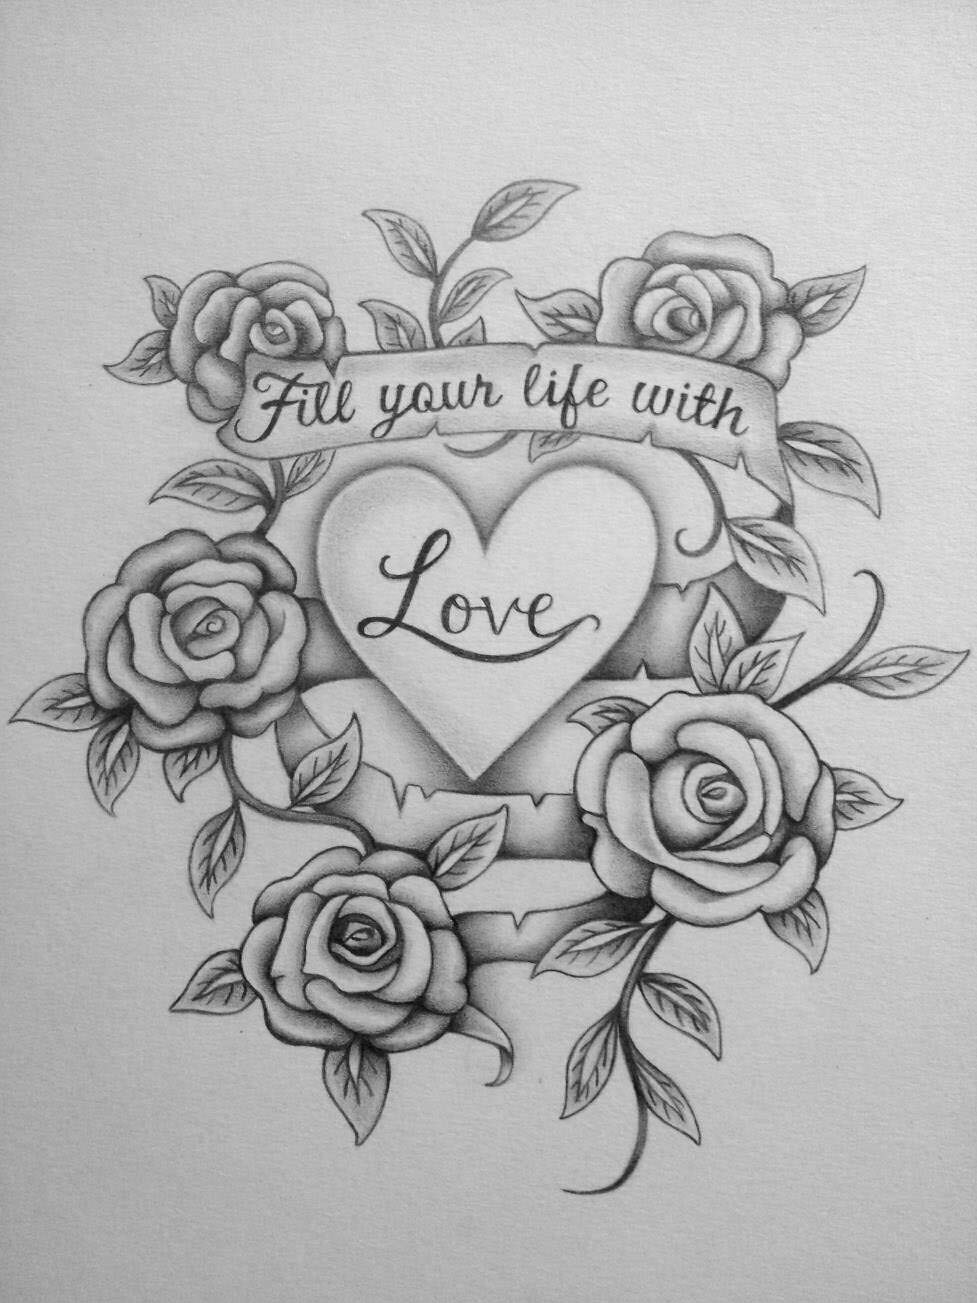 Fill your life with
Love